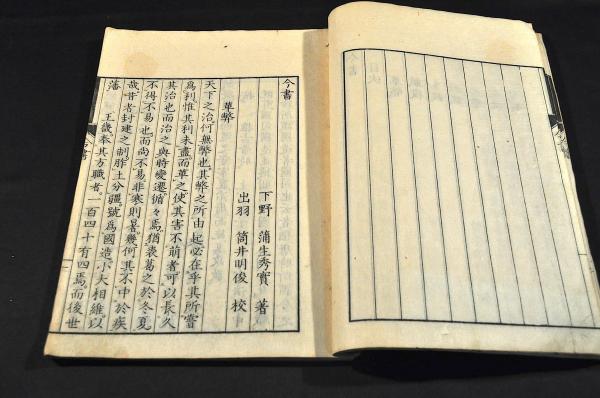 今書
下野 蒲生秀實 著
出羽 筒井明俊 校
革弊
天下之治何無弊也其弊之所由起必在乎其所嘗
爲利惟其利未盡而革之使其害不萌者可以長久
其治也而治之與時變遷循々焉猶裘葛之於冬夏
不得不易也而尚不易非寒則暑幾何其不中於疾
哉昔者封建之制胙土分疆號爲國造小大相維以
藩 王畿奉其方職者一百四十有四焉而後世